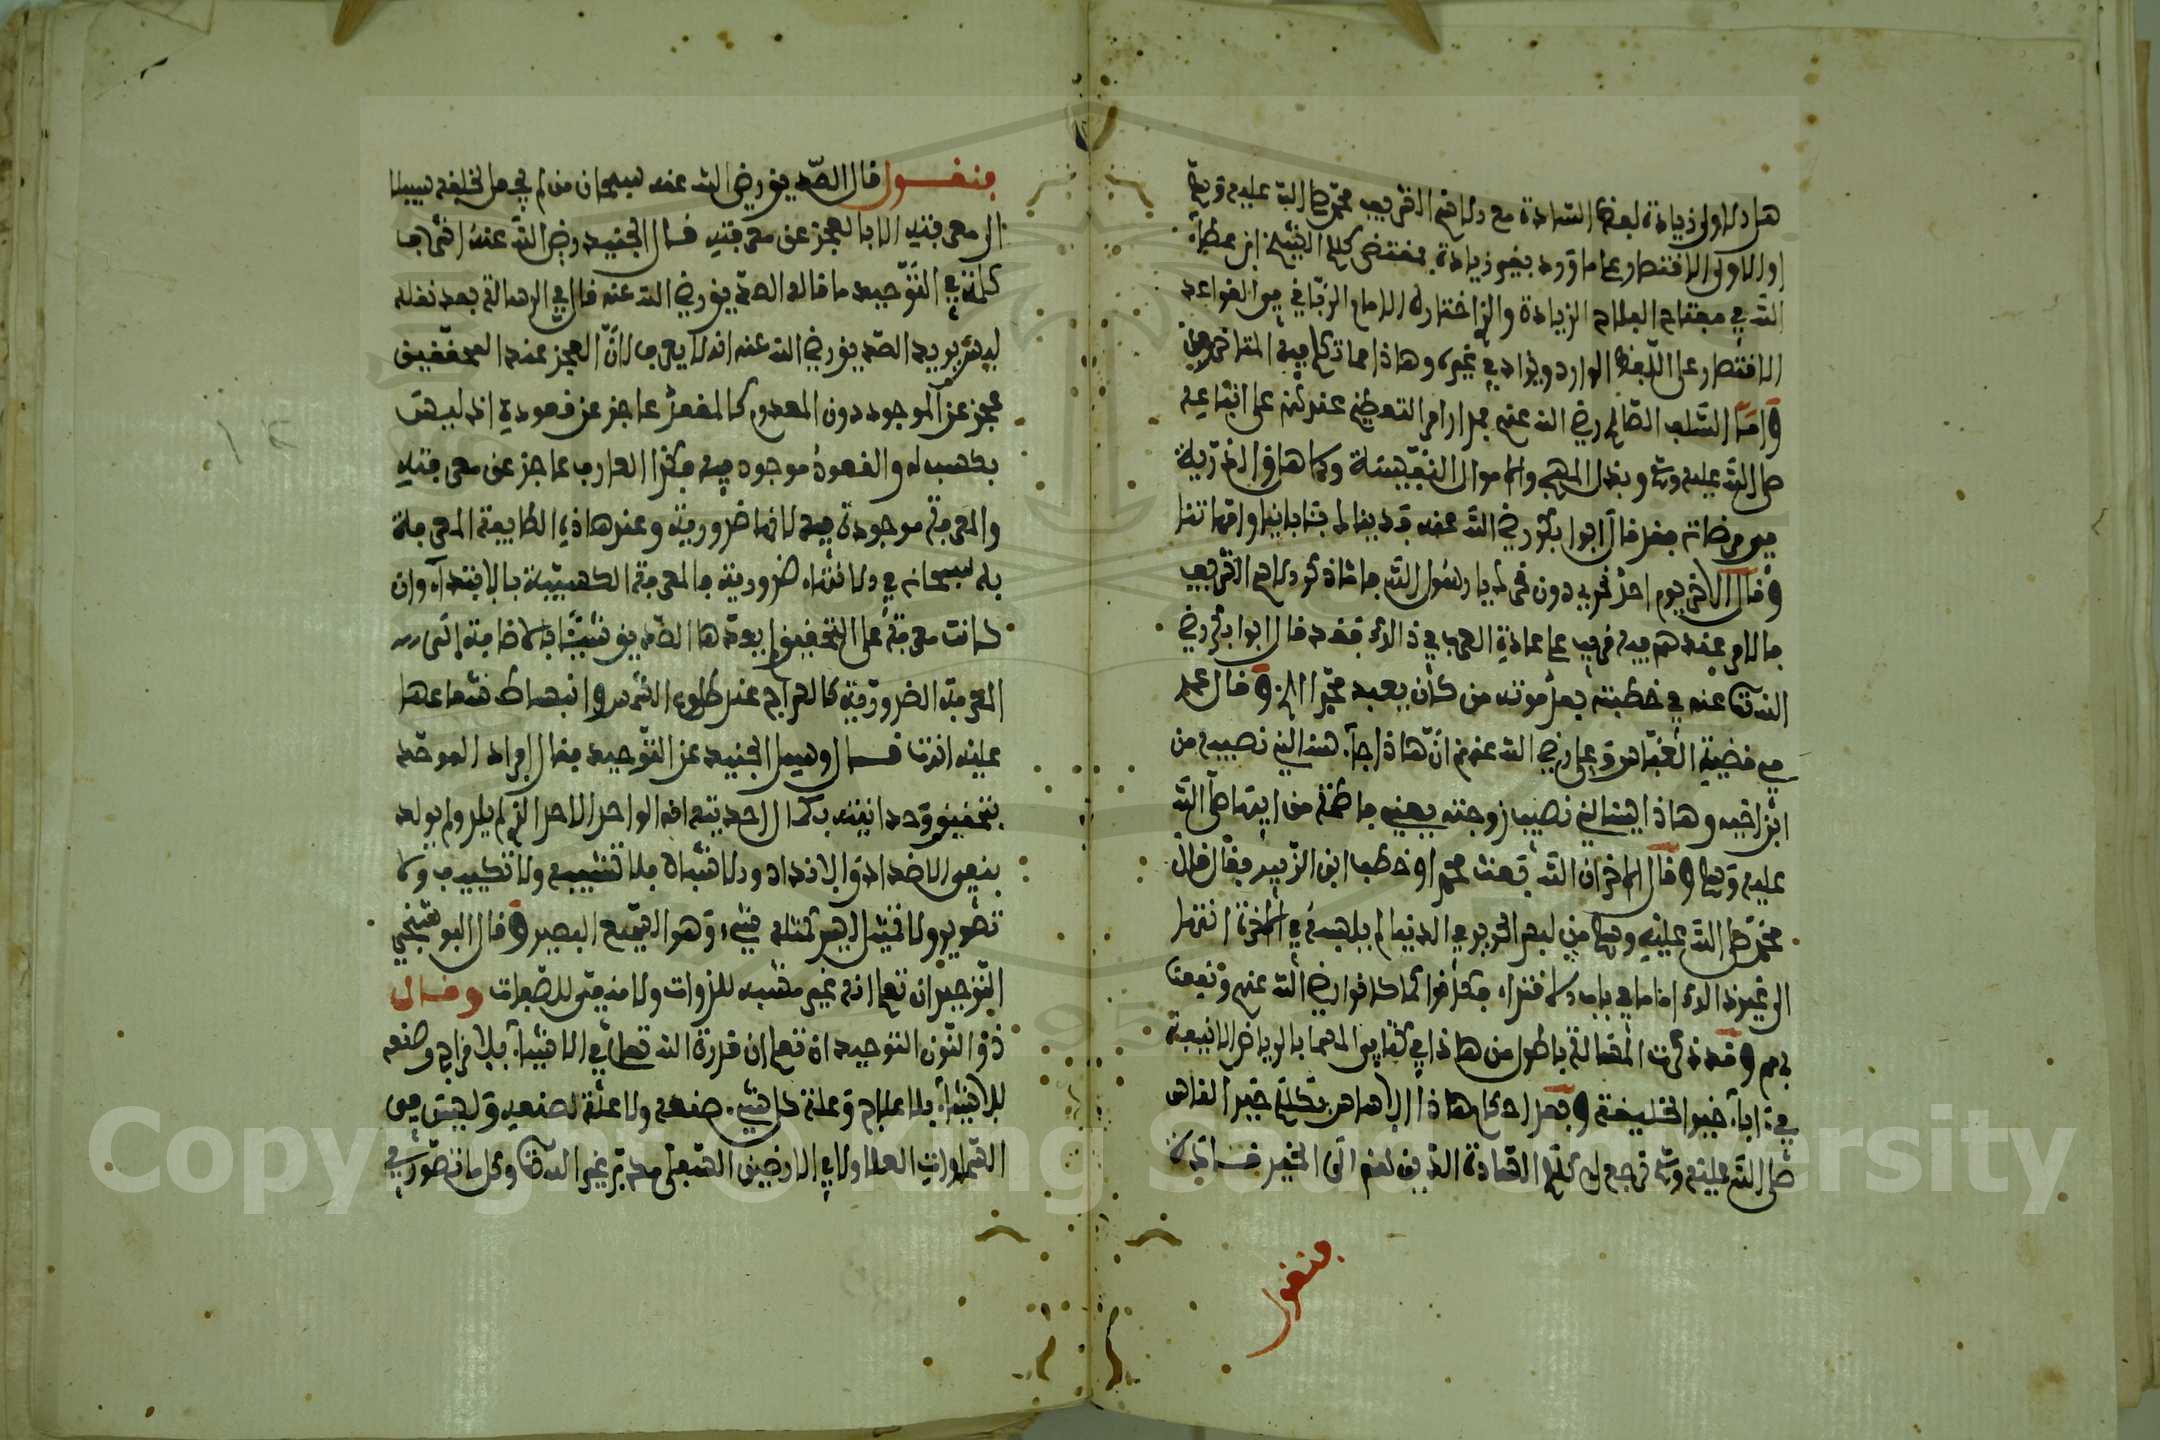 هل الاولى زيادة لفظ السيادة مع ذلك في التشريف محمد صلى الله عليه وسلم
او الاولى الاقتصار على ما ورد بغير زيادة فمقتضى كلام الشيخ ابن عطاء
الله في مفتاح الفلاح الزيادة والذي اختاره الامام الزناتي في القواعد
الاقتصار على اللفظ الوارد ويزاد في غيره وهاذا مما تكلم فيه المتاخرون
واما السلف الصالح رضي الله عنهم
صلى الله عليه وسلم وبذل المهج والاموال النفيسة والاهل والذرية
في مرضاته فقد قال ابوا بكر رضي الله عنه فديناك بئابائنا وامهاتنا
وقال الاخر يوم احد نحري دون نحرك يا رسول الله
على عادة العرب في ذالك فقد قال ابوا بكر رضي
الله تعالى عنه في خطبته بعد موته من كان يعبد محمدا الخ وقال عمر
في قضية العباس وعلي رضي الله عنهم ان هاذا جاء يسألني نصيبه من
ابن اخيه وهاذا يسألني نصيب زوجته يعني فاطمة من ابيها صلى الله
عليه وسلم وقال الاخر ان الله بعث محمدا وخطب ابن الزبير فقال قال
محمد صلى الله عليه وسلم من لبس الحرير في الدنيا لم يلبسه في الاخرة انتهى
الى غير ذالك
بهم وقد ذكرت المقالة باطول من هاذا في كتابي المسما بالرياض الانيقة
صلى الله عليه وسلم
منقول
منقول قال الصديق رضي الله عنه سبحان من لم يجعل لخلقه سبيلا
الى معرفته الا بالعجز عن معرفته قال الجنيد رضي الله عنه اشرف
كلمة في التوحيد ما قاله الصديق رضي الله عنه قال في الرسالة بعد نقله
ليس يريد الصديق رضي الله عنه انه لا يعرف لان العجز عند المحققين
عجز عن الموجود دون المعدوم كالمقعد عاجز عن قعوده اذ ليس
بكسب له والقعود موجود فيه فكذا العارف عاجز عن معرفته
والمعرفة موجودة فيه لانها ضرورية وعند هاذه الطايفة المعرفة
به سبحانه في الانتهاء ضرورية فالمعرفة الكسبية بالابتداء وان
كانت معرفة على التحقيق لم يعدها الصديق شيئا بالاضافة الى
المعرفة الضرورية كالسراج عند طلوع الشمس وانبساط شعاعها
عليه انتهى وسيل الجنيد عن التوحيد فقال افراد الموحد
بتحقيق وحدانيته بكمال احديته انه الواحد الاحد الذي لم يلد ولم يولد
بنفي الاضداد والانداد والاشباه بلا تشبيه ولا تكييف ولا
تصوير ولا تمثيل ليس كمثله شيء وهو السميع البصير وقال البوشنجي
التوحيد ان تعلم انه غير مشبه للذوات ولا منفي للصفات وقال
ذو النون التوحيد ان تعلم ان قدرة الله تعالى في الاشياء بلا مزاج وصنعه
للاشياء بلا علاج وعلة كل شيء صنعه ولا علة لصنعه وليس في
السماوات العلا ولا في الارضين السبع مدبر غير الله تعالى وكل ما تصور في